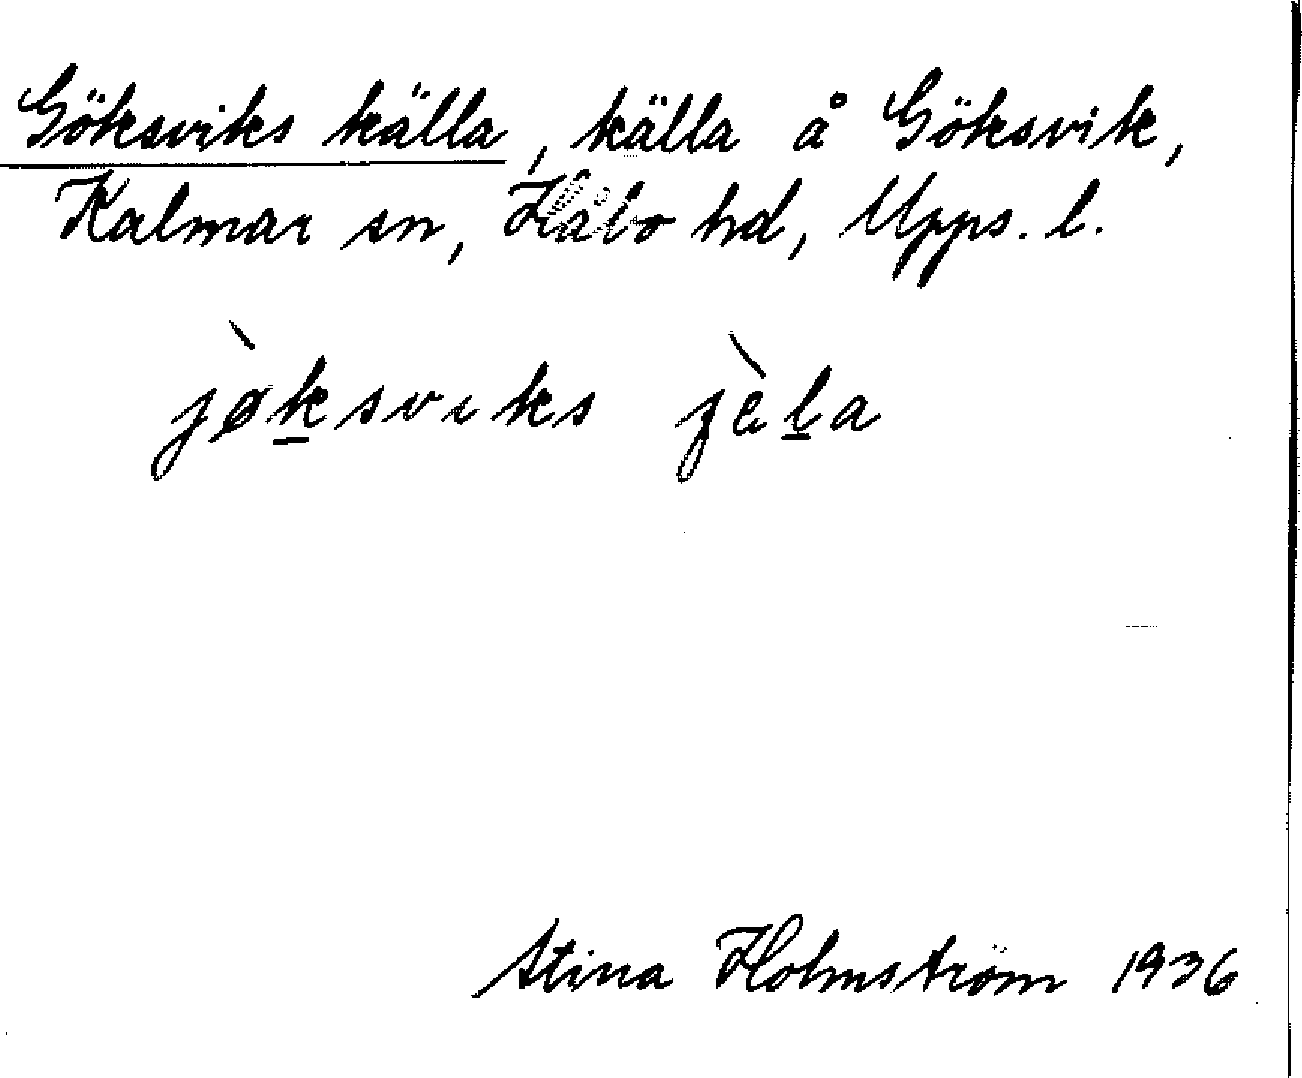 Göksviks källa, källa å Göksvik,
Kalmar sn, Håbo hd, Upps. l.
jø̀k̲sviks ɟèl̲a
Stina Holmström 1936